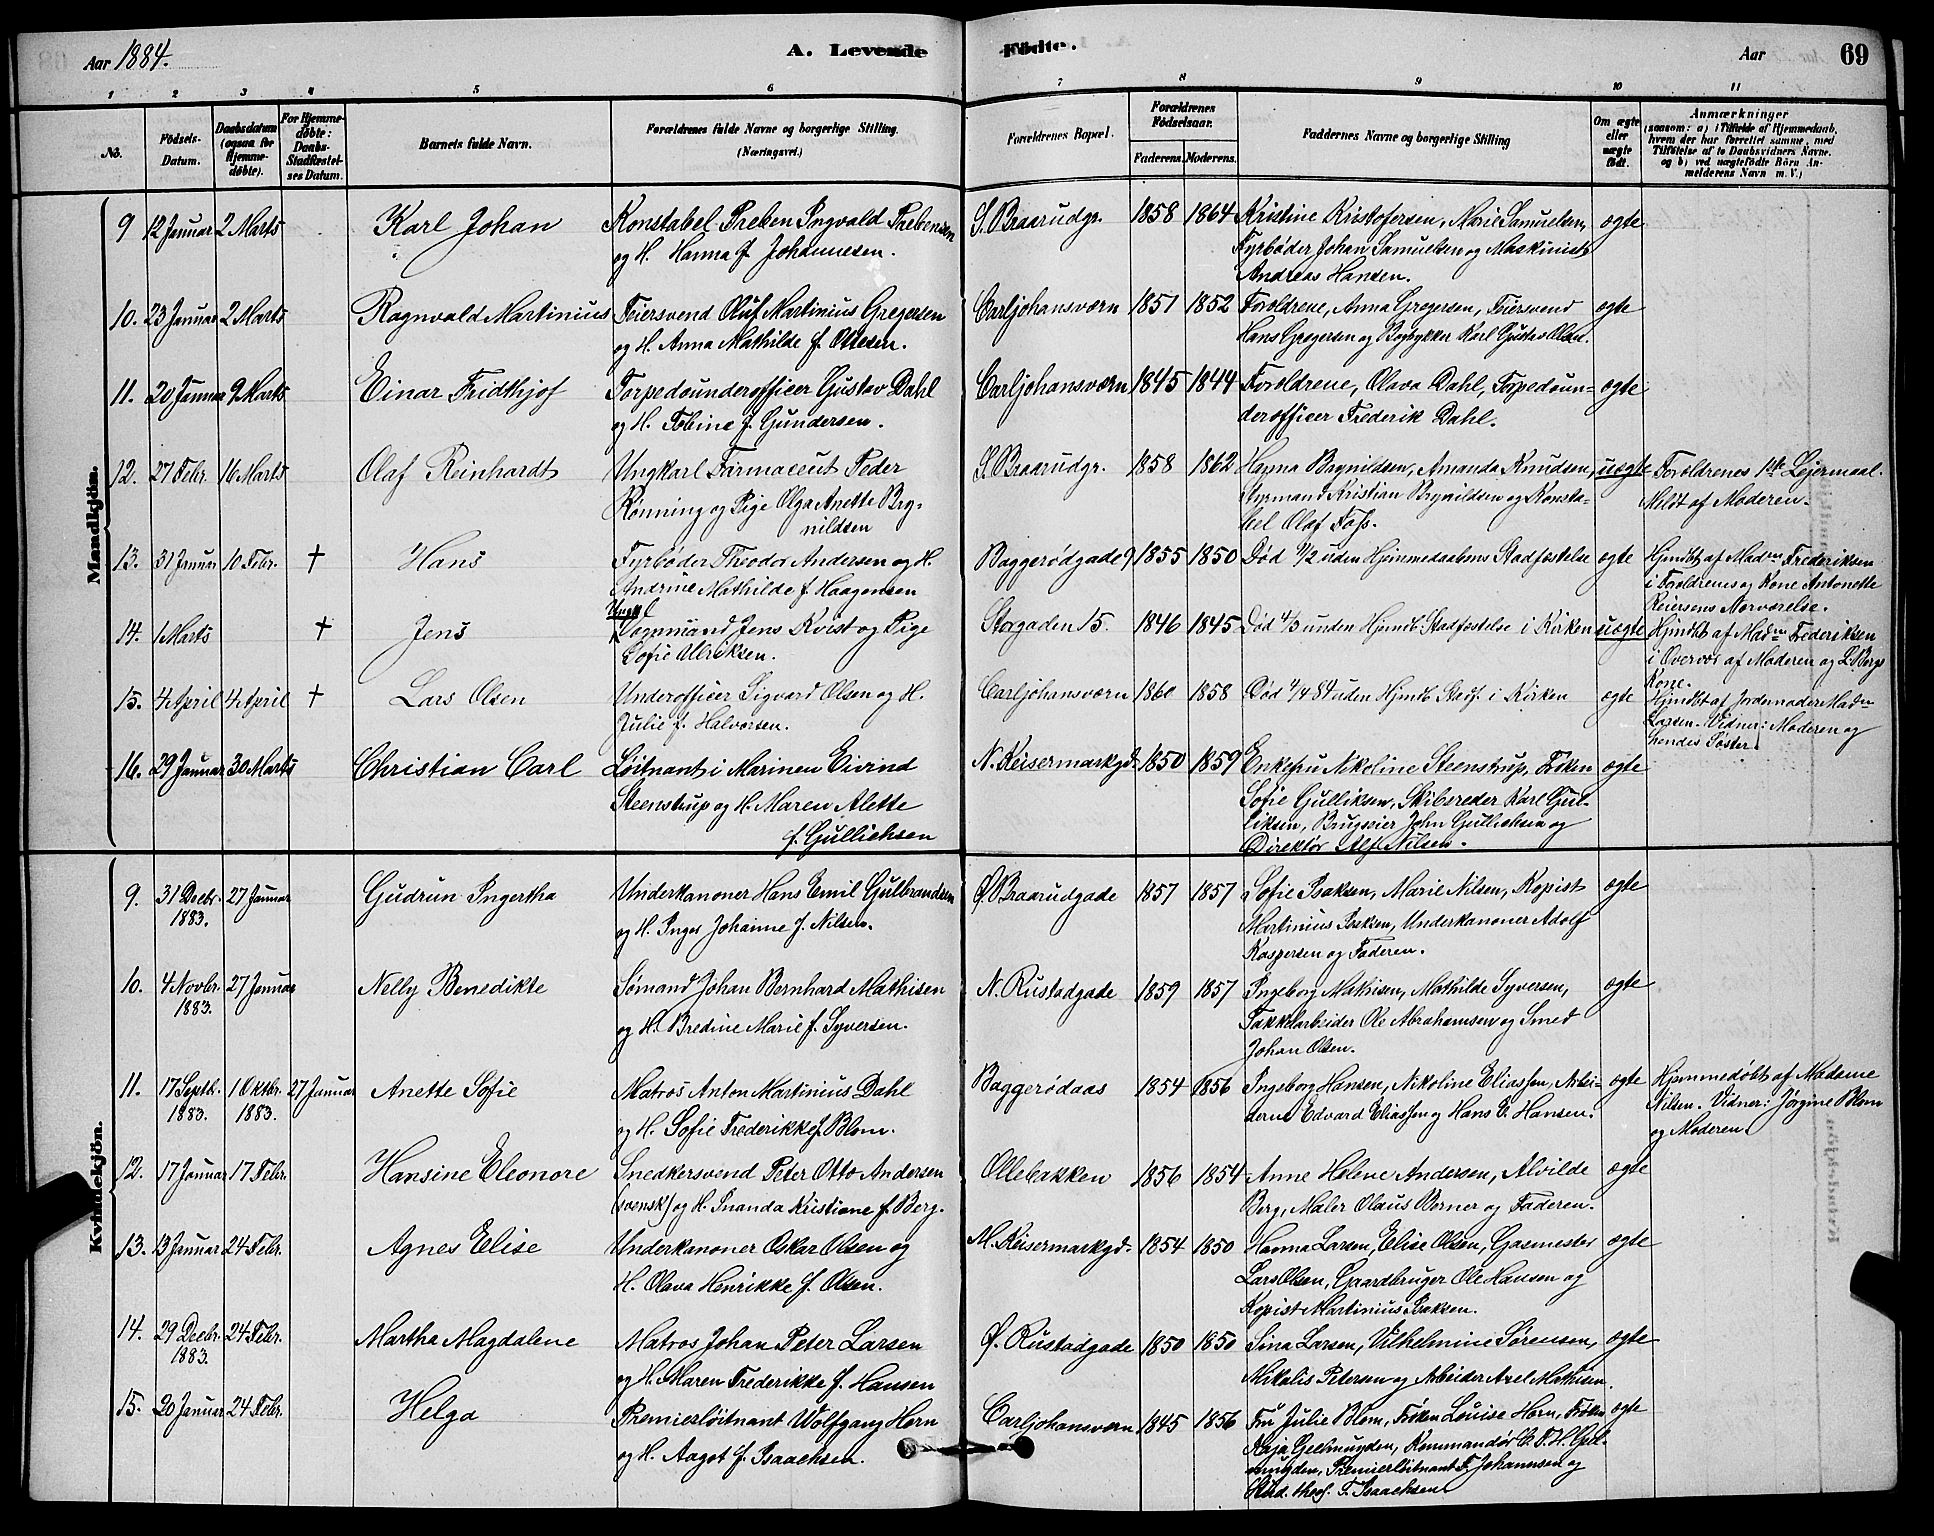 Aar 1884.
A. Levende Fødte.
Aar
69
1 2 3 4 5 6 7 8 9 10 11
No.
Födsels-Datum.
Daabsdatum (ogsaa for Hjemme-døbte).
For Hjemme-døbte: Daabs-Stadfæstel-ses Datum.
Barnets fulde Navn.
Forældrenes fulde Navne og borgerlige Stilling. (Næringsvei.)
Forældrenes Bopæl.
Forældrenes Födselsaar.
Faderens. Moderens.
Faddernes Navne og borgerlige Stilling
Om ægte eller uægte födt.
Anmærkninger (saasom: a) i Tilfælde af Hjemmedaab, hvem der har forrettet samme, med Tilföielse af to Daabsvidners Navne. og b) ved uægtefödte Börn An-melderens Navn m. V.)
Mandkjön.
9 12 Januar 2 Marts Karl Johan Konstabel Preben Ingvald Prebensen S. Braarudgr. 1858 1864 Kristine Kristofersen, Marie Samuelsen, ægte
og H. Hanna f. Johannesen. Fyrbøder Johan Samuelsen og Maskinist
Andreas Hansen.
10. 23 Januar 2 Marts Ragnvald Martinius Feiersvend Oluf Martinius Gregersen Carljohansværn 1851 1852 Forældrene, Anna Gregersen, Feiersvend ægte
og H. Anna Mathilde f. Ottesen. Hans Gregersen og Karl Gustav Olsen.
11. 20 Januar 9 Marts Einar Fridthjof Torpedounderofficer Gustav Dahl Carljohansværn 1845 1844 Forældrene, Olava Dahl, Torpedoun- ægte
og H. Tobine f. Gundersen. derofficer Frederik Dahl.
12. 27 Febr. 16 Marts Olaf Reinhardt Ungkarl Farmaceut Peder S. Braarudgr. 1858 1862 Hanna Brynildsen, Amanda Knudsen, uægte Forældrenes 1ste Leiermaal.
Rönning og Pige Olga Anette Bry- Styrmand Kristian Brynildsen og Konsta- Meldt af Moderen.
nildsen bel Olaf Foss.
13. 31 Januar 10 Febr. † Hans Fyrbøder Theodor Andersen og H. Baggerødgade 9 1855 1850 Død uden Hjemmedaabens Stadfæstelse ægte Hjmdbt af Madm Frederiksen
Andrine Mathilde f. Haagensen i Forældrenes og Kone Antonette
Reiersens Nærværelse.
14. 1 Marts † Jens Ungkl Vognmand Jens Kvist og Pige Storgaden 15. 1846 1845 Død 4/3 uden Hjmdb. Stadfæstelse i Kirken uægte Hjmdbt af Madm Frederiksen
Sofie Ulriksen. i Overvær af Moderen og L. Bergs
Kone.
15. 4 April 4 April † Lars Olsen Underofficer Sigvard Olsen og H. Carljohansværn 1860 1858 Død 4/4 84 uden Hjmdb. Stadf. i Kirken ægte Hjmdbt af Jordemoder Madm
Julie f. Halvorsen. Larsen. Vidner: Moderen og
hendes Søster.
16. 29 Januar 30 Marts Christian Carl Løitnant i Marinen Eivind N. Keisermarkgd. 1850 1859 Enkefru Nikoline Steenstrup, Frøken ægte
Steenstrup og H. Maren Alette Sofie Gulliksen, Skibsreder Karl Gul-
f. Gullichsen liksen, Brugseier John Gullichsen og
Direktør Alf Nilsen.
Kvindekjön.
9. 31 Decbr. 1883. 27 Januar Gudrun Ingertha Underkanoner Hans Emil Gulbrandsen Ø. Braarudgade 1857 1857 Sofie Isaksen, Marie Nilsen, Kopist ægte
og H. Inger Johanne f. Nilsen. Martinius Isaksen, Underkanoner Adolf
Kaspersen og Faderen.
10. 4 Novbr. 1883. 27 Januar Nelly Benedikte Sømand Johan Bernhard Mathisen N. Rustadgade 1859 1857 Ingeborg Mathisen, Mathilde Syversen, ægte
og H. Bredine Marie f. Syversen. Takkelarbeider Ole Abrahamsen og Smed
Johan Olsen.
11. 17 Septb. 1883. 1 Oktbr. 1883. 27 Januar Anette Sofie Matros Anton Martinius Dahl Baggerødaas 1854 1856 Ingeborg Hansen, Nikoline Eliassen, Arbei- ægte Hjemmedøbt af Madame
og H. Sofie Frederikke f. Blom. derne Edvard Eliassen og Hans E. Hansen. Nilsen. Vidner: Jørgine Blom
og Moderen.
12. 17 Januar 17 Febr. Hansine Eleonore Snedkersvend Peter Otto Andersen Ollebakken 1856 1854 Anne Helene Andersen, Alvilde ægte
(svensk) og H. Inanda Kristiane f. Berg. Berg, Maler Olaus Berner og Faderen.
13. 13 Januar 24 Febr. Agnes Elise Underkanoner Oskar Olsen og M. Keisermarkgd. 1854 1850 Hanna Larsen, Elise Olsen, Gasmester ægte
H. Olava Henrikke f. Olsen. Lars Olsen, Gaardbruger Ole Hansen og
Kopist Martinius Isaksen.
14. 29 Decbr. 1883. 24 Febr. Martha Magdalene Matros Johan Peter Larsen Ø. Rustadgade 1850 1850 Sina Larsen, Vilhelmine Sørensen, ægte
og H. Maren Frederikke f. Hansen Mikalis Petersen og Arbeider Axel Mathisen.
15. 20 Januar 24 Febr. Helga Premierløitnant Wolfgang Horn Carljohansværn 1845 1856 Fru Julie Blom, Frøken Louise Horn, Frøken ægte
og H. Aagot f. Isaachsen. Kaja Geelmuyden, Kommandør C. P. H. Geel-
muyden, Premierløitnant F. Johannsen og
Stud. theol. F. Isaachsen